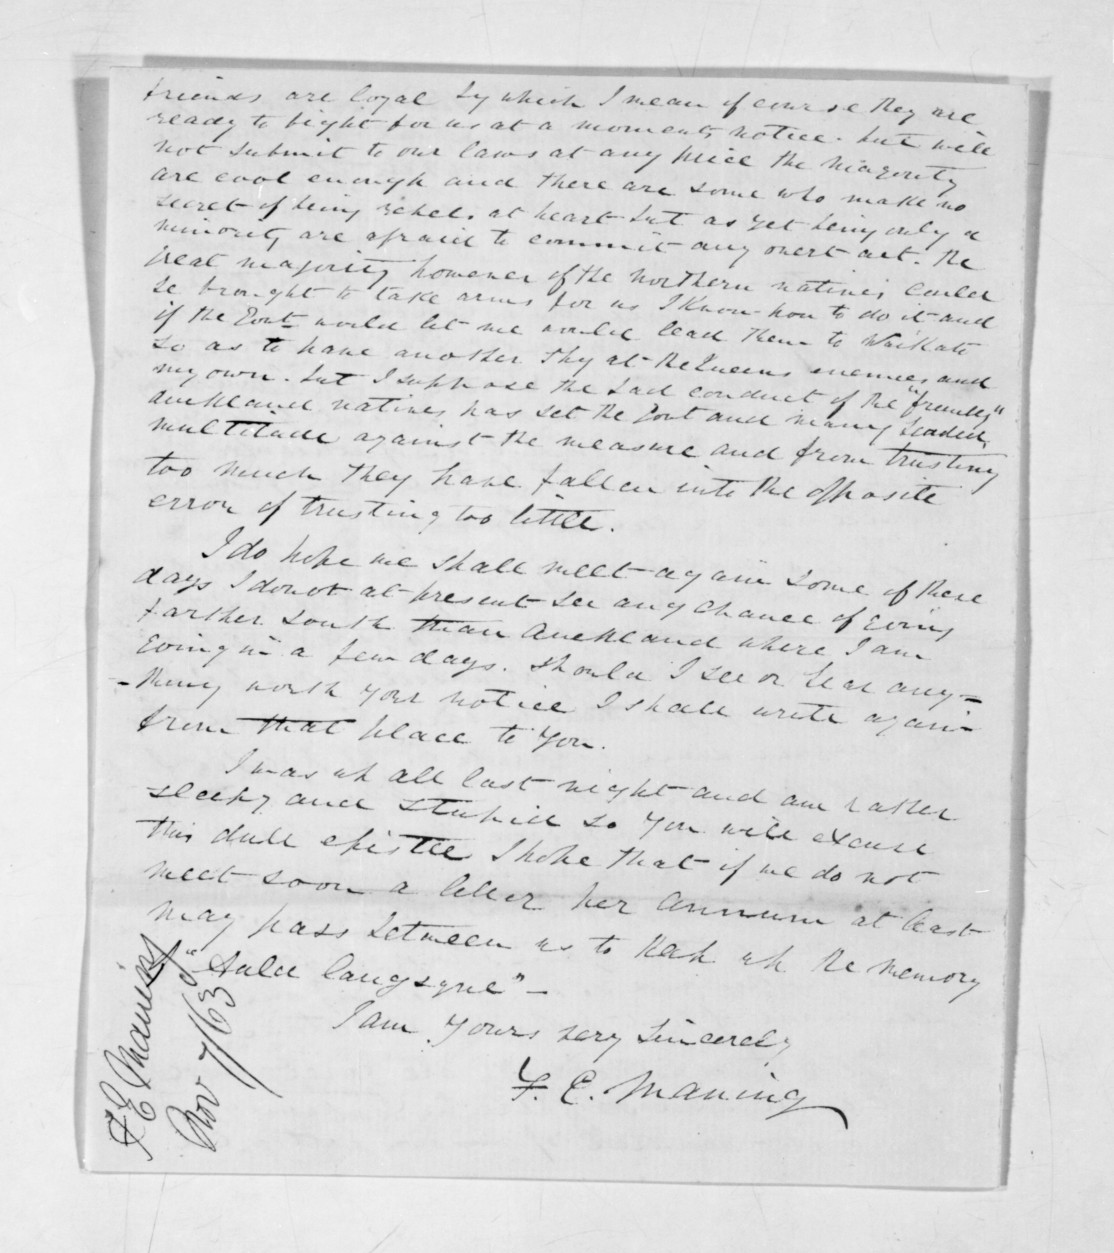 friends are loyal by which I mean of course they are
ready to fight for us at a moments notice. but will
not submit to our laws at any price the majority
are cool enough and there are some who make no
secret of being rebels at heart but as yet being only a
minority are afraid to commit any overt act. the
great majority however of the northern natives could
be brought to take arms for us I know how to do it and
if the Govt would let me would lead them to Waikato
so as to have another shy at the Queens enemies and
my own. but I suppose the bad conduct of the "friendly"
auckland natives has set the Govt and many
multitude against the measure and from trusting
too much they have fallen into the opposite
error of trusting too little.
I do hope we shall meet again some of these
days I do not at present see any chance of going
farther south than Auckland where I am
going in a few days. should I see or hear any-
-thing worth your notice I shall write again
from that place to you.
I was up all last night and am rather
sleepy and stupid so you will excuse
this dull epistle I hope that if we do not
meet soon a letter per annum at least
may pass between us to keep up the memory
of "Auld langsyne" -
I am Yours very sincerely
F. E. Maning
F E Maning
Nov 7/63